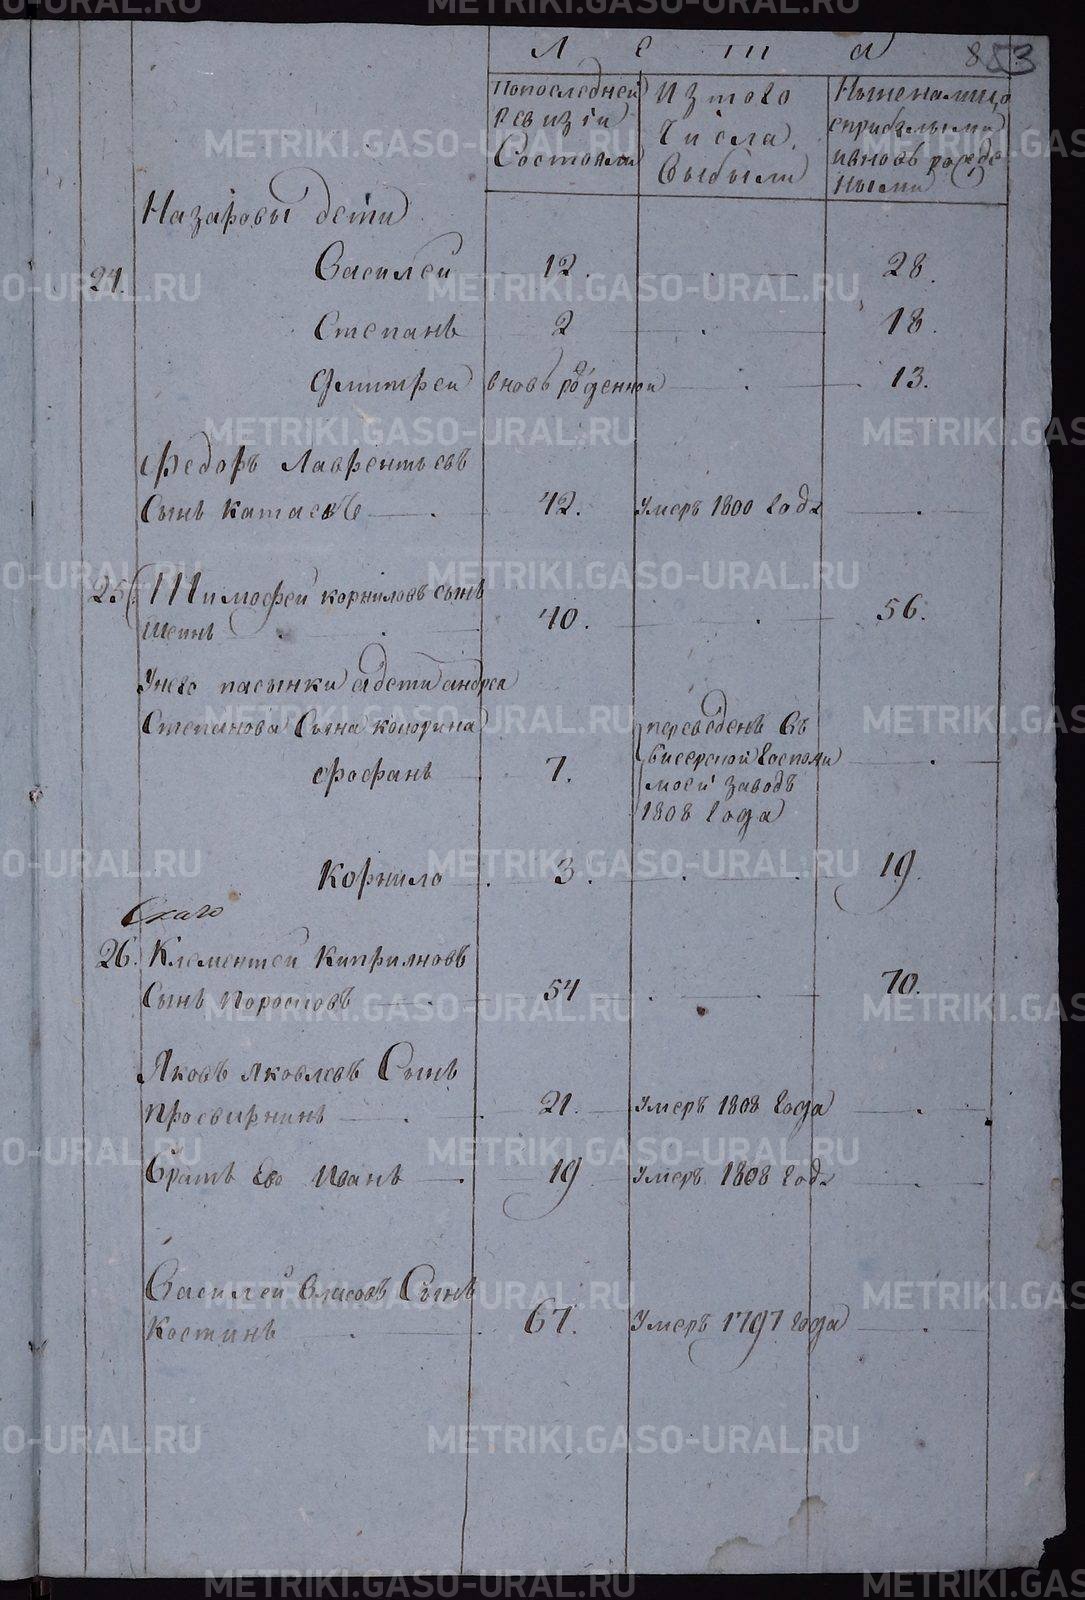 Лета
853
По последней ревизiи Состояли
Из того Числа Выбыли
Ныне на лицо с прибылыми и вновь рождеными
Назаровы дети
24.
Василей 12. 28.
Степанъ 2 18.
Дмитрей вновь рожденной 13.
Федоръ Лаврентьевъ
Сынъ Катаевъ 42. Умеръ 1800 Года
25. Тимофей корниловъ сынъ
Шеинъ 40. 56.
У него пасынки а дети андрея
Степанова Сына
Фофанъ 7. переведенъ Въ
бисерской Господи
мой заводъ
1808 Года
Корнило 3. 19.
26. Клементей Киприяновъ
Сынъ Порословъ 54 70.
Яковъ Яковлевъ Сынъ
Просвирнинъ 21. Умеръ 1808 Года
Братъ Его Иванъ 19 Умеръ 1808 Года
Василей Власовъ Сынъ
Костинъ 67. Умеръ 1797 Года
METRIKI.GASO-URAL.RU